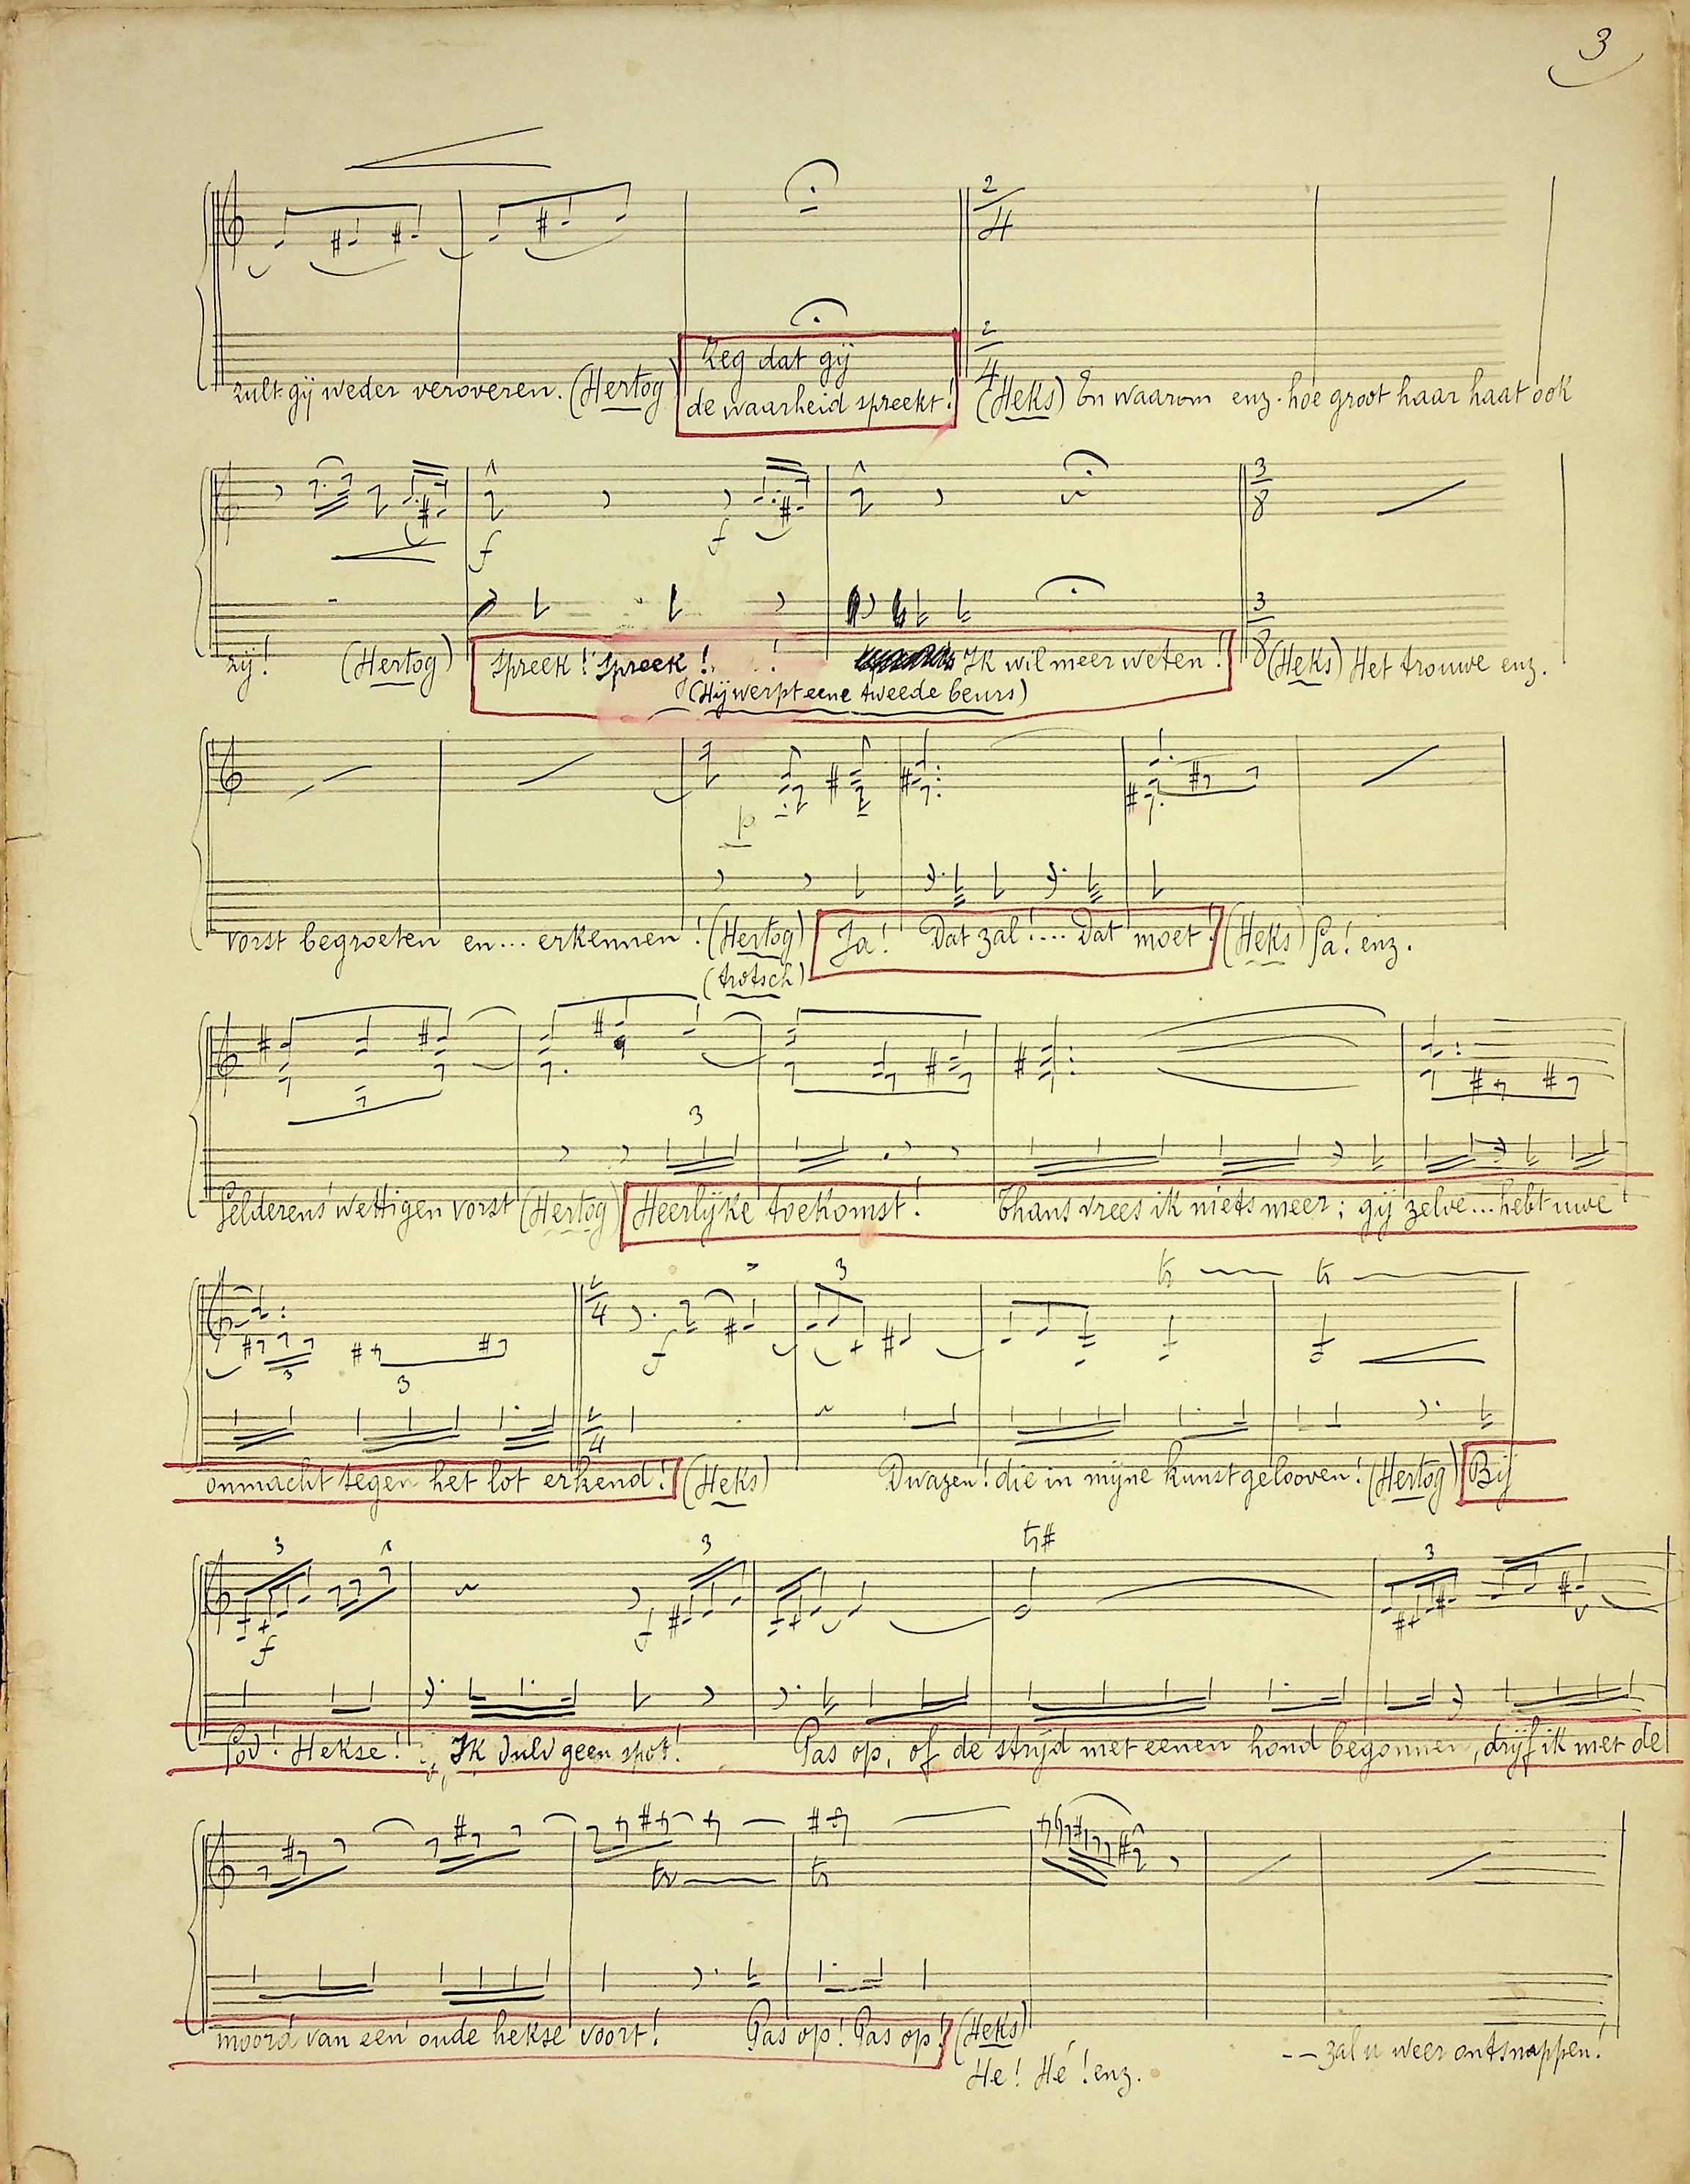 3
zult gij weder veroveren. (Hertog) Zeg dat gij de waarheid spreekt! (Heks) En waarom enz. hoe groot haar haat ook
zij! (Hertog) Spreek! Spreek! Ik wil meer weten! (Heks) Het trouwe enz.
(Hij werpt eene tweede beurs)
vorst begroeten en... erkennen! (Hertog) Ja! Dat zal!.... Dat moet! (Heks) Ga! enz.
(trotsch)
Gelderens wettigen vorst (Hertog) Heerlijke toekomst! Thans vrees ik niets meer; gij zelve... hebt uwe
onmacht tegen het lot erkend! (Heks) Dwazen! die in mijne kunst gelooven! (Hertog) Bij
God! Hekse! Ik duld geen spot! Pas op, of de strijd met eenen hond begonnen, drijf ik met de
moord van een oude hekse voort! Pas op! Pas op! (Heks)
He! Hé! enz. -- zal u weer ontsnappen!